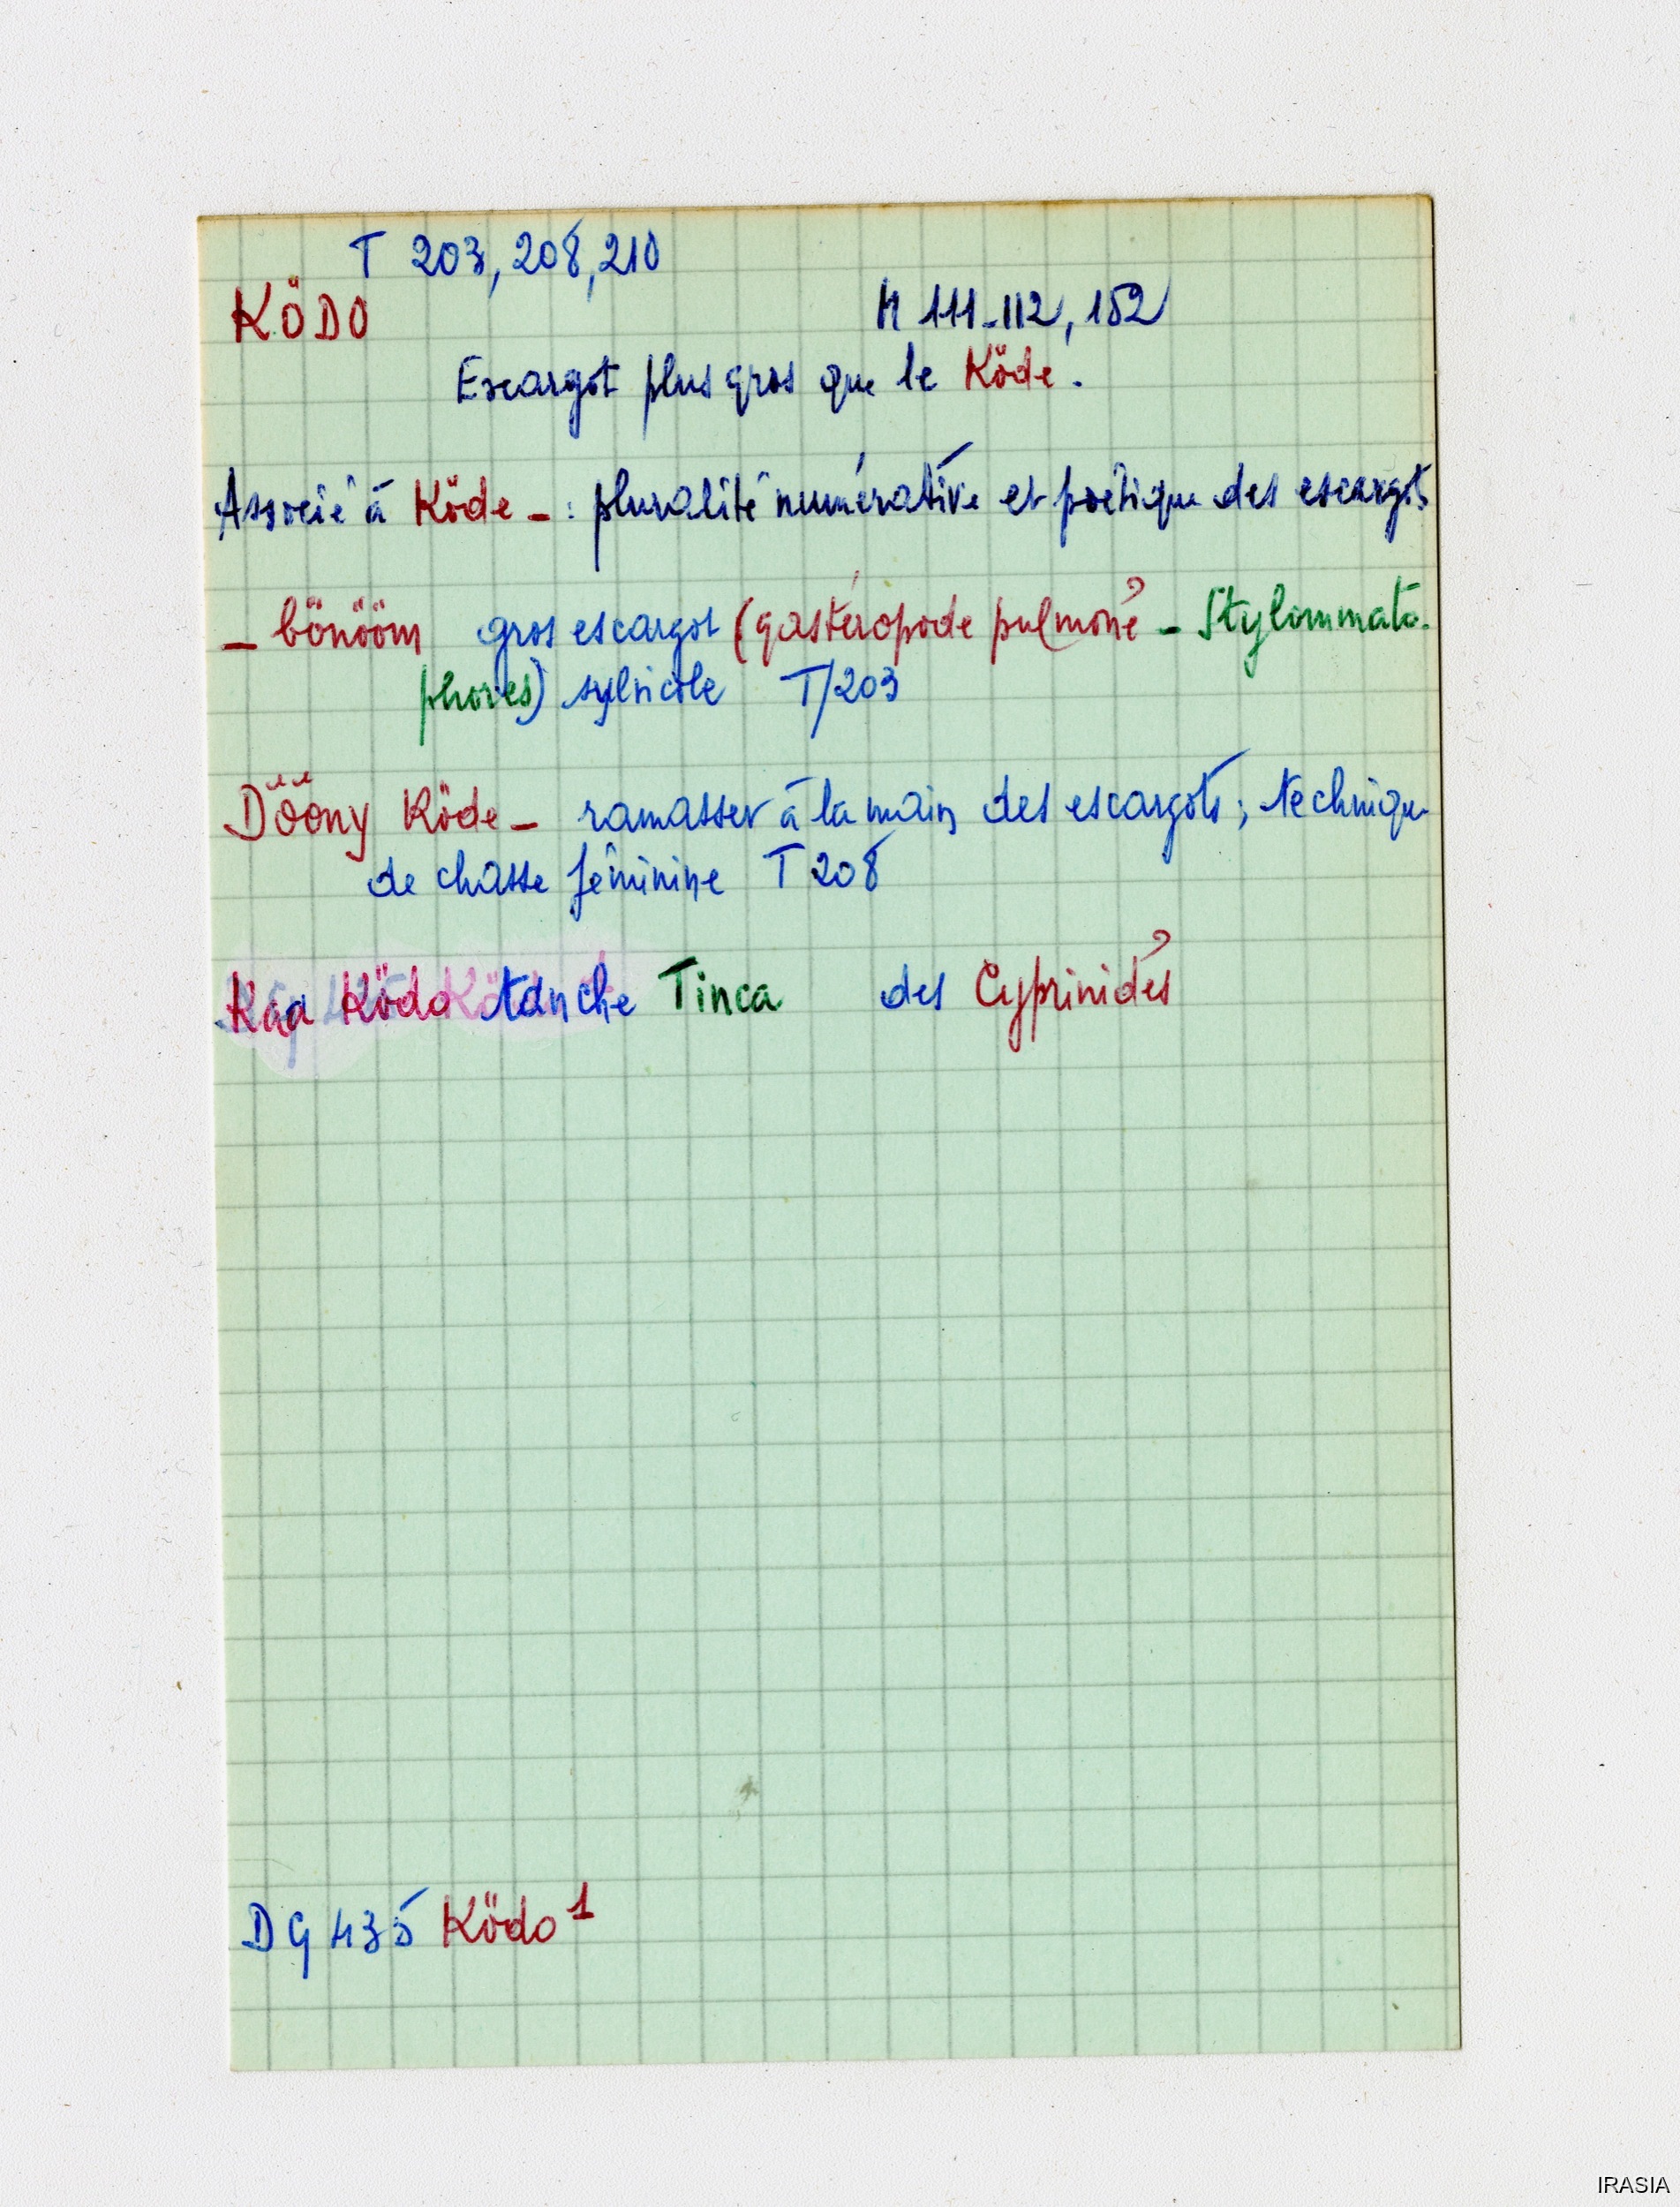 T 203, 208, 210
KÖDO M 111-112, 152
Escargot plus gros que le Köde.
Associé à Köde _ : pluralité numérative et poétique des escargots
_ bönööm gros escargot (gastéropode pulmoné - Stylommato-
phores) sylvicole T/203
Dööny Köde _ ramasser à la main des escargots ; technique
de chasse féminine T 208
Kaa Ködo tanche Tinca des Cyprinidés
DG 435 Ködo 1
IRASIA